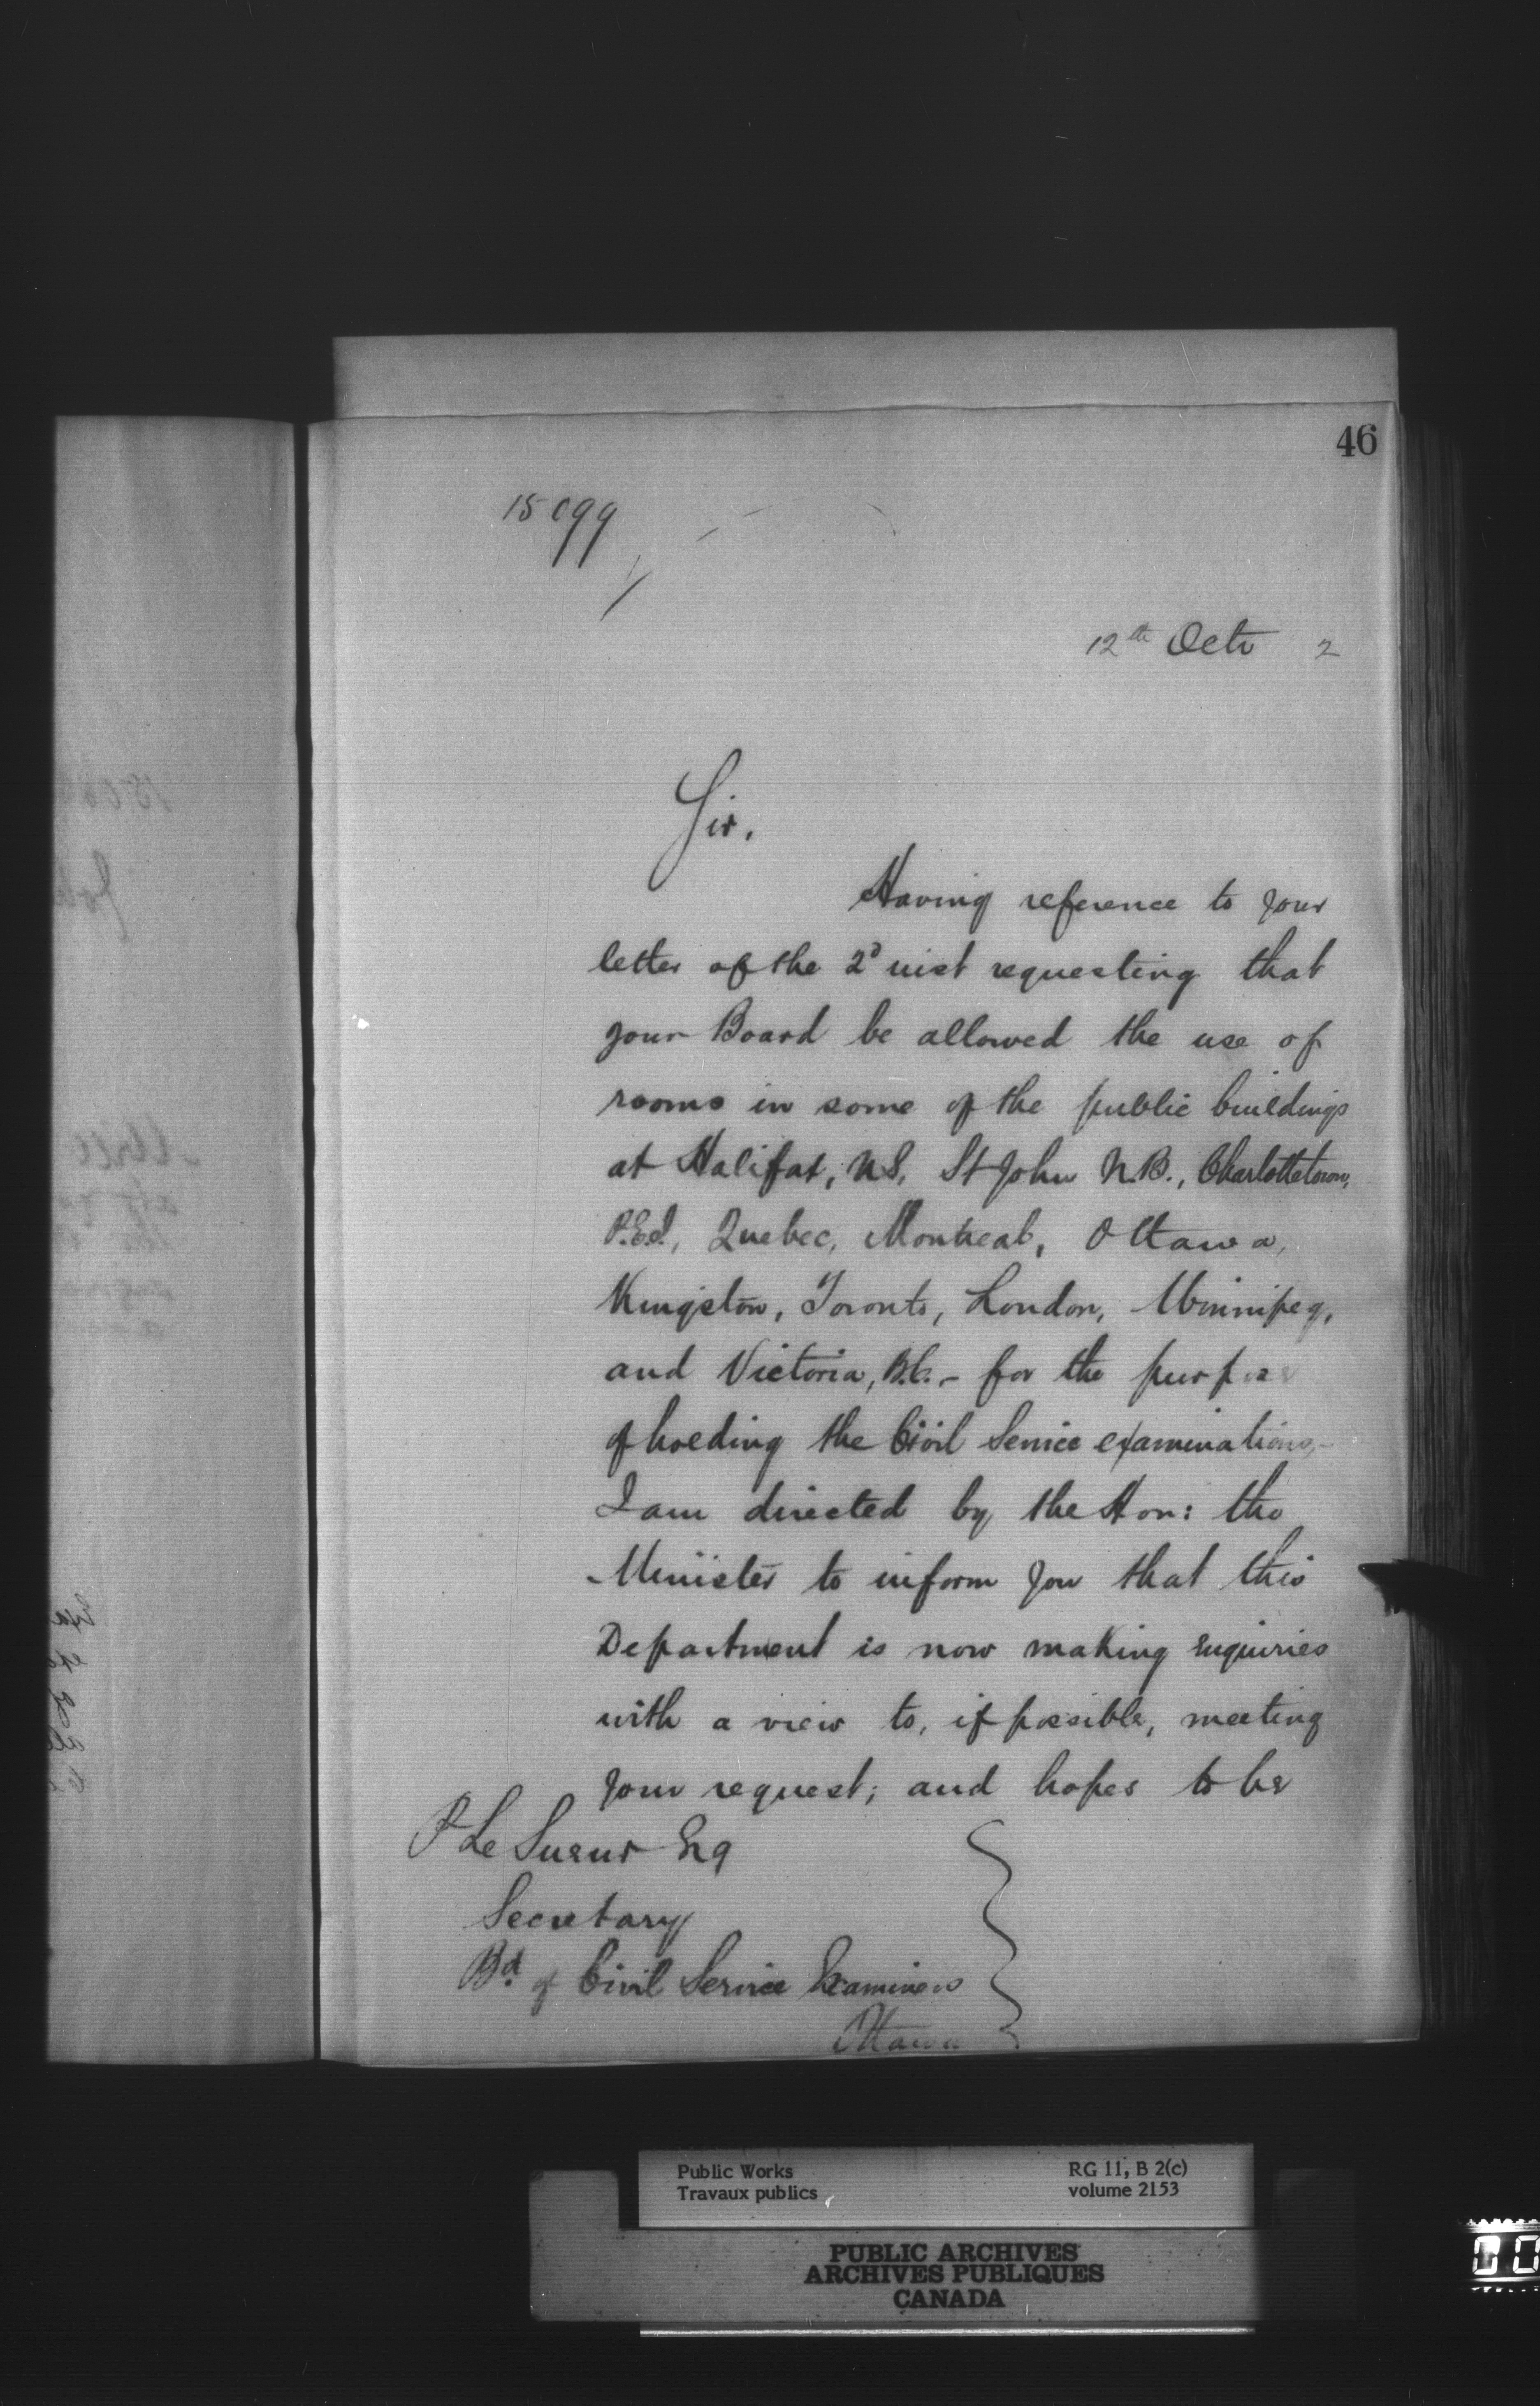 46
15099
12th Octr 2
Sir,
Having reference to your
letter of the 2d inst requesting that
your Board be allowed the use of
rooms in some of the public buildings
at Halifax, N.S, St John N.B., Charlottetown,
P.E.I, Quebec, Montreal, Ottawa,
Kingston, Toronto, London, Winnipeg,
and Victoria, B.C. - for the purpose
of holding the Civil Service examinations,-
I am directed by the Hon: the
Minister to inform you that this
Department is now making enquiries
with a view to, if possible, meeting
your request; and hopes to be
P Le Sueur Esq
Secretary
Bd. of Civil Service Examiners
Ottawa
Public Works
Travaux publics
RG 11, B 2(c)
volume 2153
PUBLIC ARCHIVES
ARCHIVES PUBLIQUES
CANADA